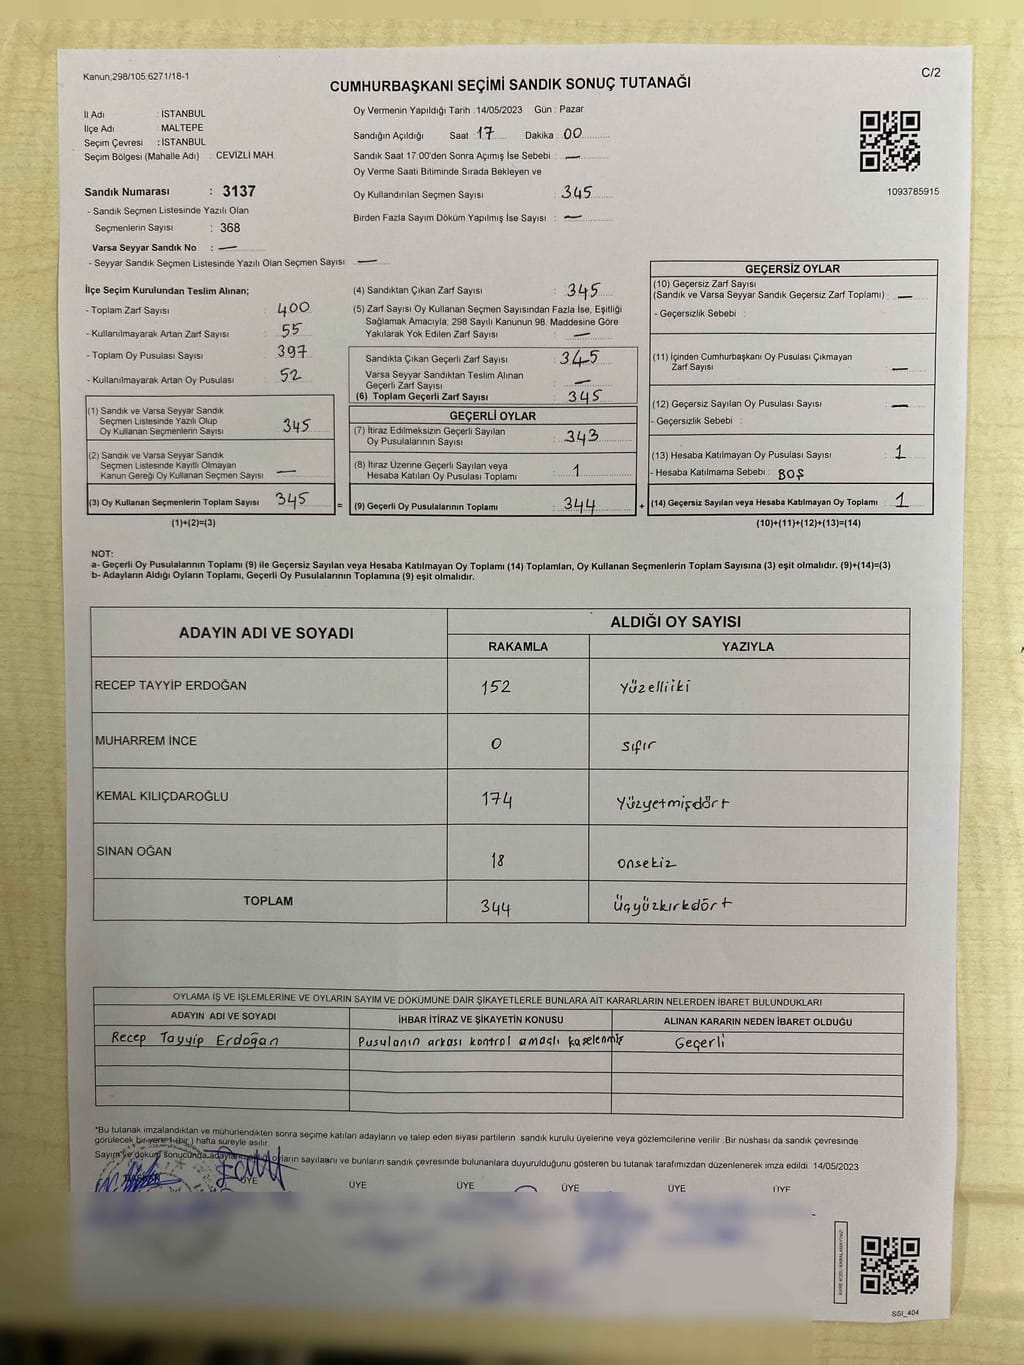 Kanun,298/105,6271/18-1
C/2
CUMHURBAŞKANI SEÇİMİ SANDIK SONUÇ TUTANAĞI
İl Adı : İSTANBUL
İlçe Adı : MALTEPE
Seçim Çevresi : İSTANBUL
Seçim Bölgesi (Mahalle Adı) : CEVİZLİ MAH.
Sandık Numarası : 3137
- Sandık Seçmen Listesinde Yazılı Olan
Seçmenlerin Sayısı : 368
Varsa Seyyar Sandık No : —
- Seyyar Sandık Seçmen Listesinde Yazılı Olan Seçmen Sayısı : —
Oy Vermenin Yapıldığı Tarih : 14/05/2023 Gün : Pazar
Sandığın Açıldığı Saat : 17 Dakika : 00
Sandık Saat 17:00'den Sonra Açımış İse Sebebi : —
Oy Verme Saati Bitiminde Sırada Bekleyen ve
Oy Kullandırılan Seçmen Sayısı : 345
Birden Fazla Sayım Döküm Yapılmış İse Sayısı : —
1093785915
İlçe Seçim Kurulundan Teslim Alınan;
- Toplam Zarf Sayısı : 400
- Kullanılmayarak Artan Zarf Sayısı : 55
- Toplam Oy Pusulası Sayısı : 397
- Kullanılmayarak Artan Oy Pusulası : 52
(1) Sandık ve Varsa Seyyar Sandık
Seçmen Listesinde Yazılı Olup
Oy Kullanan Seçmenlerin Sayısı : 345
(2) Sandık ve Varsa Seyyar Sandık
Seçmen Listesinde Kayıtlı Olmayan
Kanun Gereği Oy Kullanan Seçmen Sayısı : —
(3) Oy Kullanan Seçmenlerin Toplam Sayısı : 345
(1)+(2)=(3)
=
(4) Sandıktan Çıkan Zarf Sayısı : 345
(5) Zarf Sayısı Oy Kullanan Seçmen Sayısından Fazla İse, Eşitliği
Sağlamak Amacıyla; 298 Sayılı Kanunun 98. Maddesine Göre
Yakılarak Yok Edilen Zarf Sayısı : —
Sandıkta Çıkan Geçerli Zarf Sayısı : 345
Varsa Seyyar Sandıktan Teslim Alınan
Geçerli Zarf Sayısı : —
(6) Toplam Geçerli Zarf Sayısı : 345
GEÇERLİ OYLAR
(7) İtiraz Edilmeksizin Geçerli Sayılan
Oy Pusulalarının Sayısı : 343
(8) İtiraz Üzerine Geçerli Sayılan veya
Hesaba Katılan Oy Pusulası Toplamı : 1
(9) Geçerli Oy Pusulalarının Toplamı : 344
+
GEÇERSİZ OYLAR
(10) Geçersiz Zarf Sayısı
(Sandık ve Varsa Seyyar Sandık Geçersiz Zarf Toplamı) : —
- Geçersizlik Sebebi :
(11) İçinden Cumhurbaşkanı Oy Pusulası Çıkmayan
Zarf Sayısı : —
(12) Geçersiz Sayılan Oy Pusulası Sayısı : —
- Geçersizlik Sebebi :
(13) Hesaba Katılmayan Oy Pusulası Sayısı : 1
- Hesaba Katılmama Sebebi : BOŞ
(14) Geçersiz Sayılan veya Hesaba Katılmayan Oy Toplamı : 1
(10)+(11)+(12)+(13)=(14)
NOT:
a- Geçerli Oy Pusulalarının Toplamı (9) ile Geçersiz Sayılan veya Hesaba Katılmayan Oy Toplamı (14) Toplamları, Oy Kullanan Seçmenlerin Toplam Sayısına (3) eşit olmalıdır. (9)+(14)=(3)
b- Adayların Aldığı Oyların Toplamı, Geçerli Oy Pusulalarının Toplamına (9) eşit olmalıdır.
ADAYIN ADI VE SOYADI
ALDIĞI OY SAYISI
RAKAMLA YAZIYLA
RECEP TAYYİP ERDOĞAN 152 Yüzelliiki
MUHARREM İNCE 0 sıfır
KEMAL KILIÇDAROĞLU 174 Yüzyetmişdört
SİNAN OĞAN 18 onsekiz
TOPLAM 344 Üçyüzkırkdört
OYLAMA İŞ VE İŞLEMLERİNE VE OYLARIN SAYIM VE DÖKÜMÜNE DAİR ŞİKAYETLERLE BUNLARA AİT KARARLARIN NELERDEN İBARET BULUNDUKLARI
ADAYIN ADI VE SOYADI İHBAR İTİRAZ VE ŞİKAYETİN KONUSU ALINAN KARARIN NEDEN İBARET OLDUĞU
Recep Tayyip Erdoğan Pusulanın arkası kontrol amaçlı kaşelenmiş Geçerli
"Bu tutanak imzalandıktan ve mühürlendikten sonra seçime katılan adayların ve talep eden siyasi partilerin sandık kurulu üyelerine veya gözlemcilerine verilir. Bir nüshası da sandık çevresinde
görülecek bir yere 1 (bir) hafta süreyle asılır.
Sayım ve döküm sonucunda adayların oyların sayılanı ve bunların sandık çevresinde bulunanlara duyurulduğunu gösteren bu tutanak tarafımızdan düzenlenerek imza edildi. 14/05/2023
ÜYE ÜYE ÜYE ÜYE ÜYE ÜYE
SSI_404